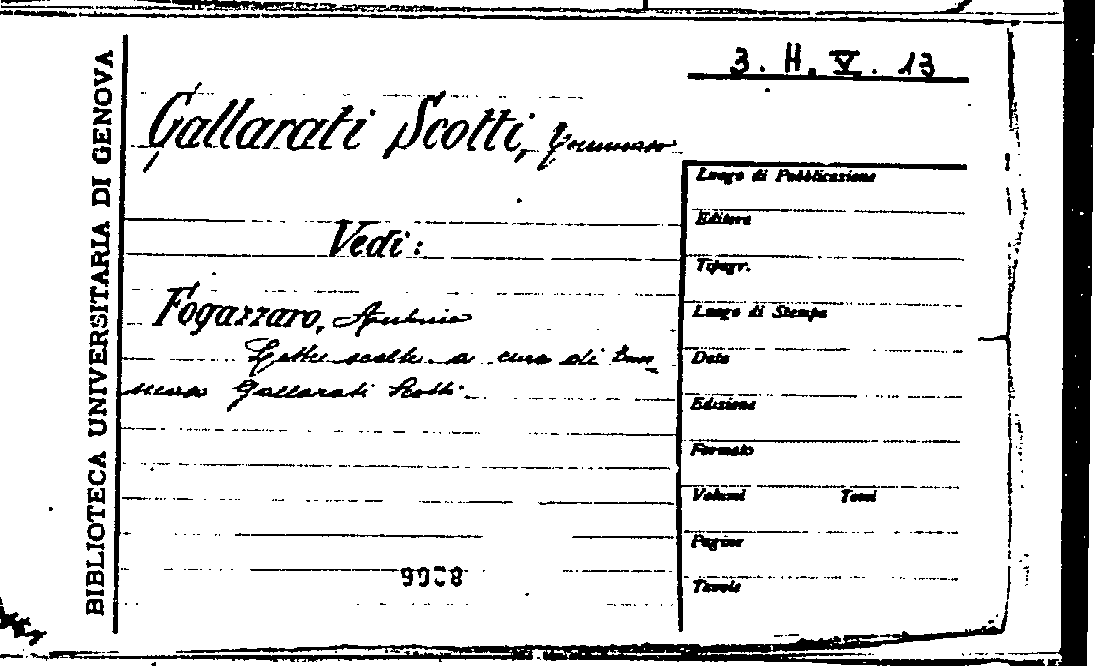 BIBLIOTECA UNIVERSITARIA DI GENOVA
3. H. V. 13
Gallarati Scotti, Tommaso
Vedi:
Fogazzaro, Antonio
Lettere scelte a cura di Tom-
maso Gallarati Scotti.
Luogo di Pubblicazione
Editore
Tipogr.
Luogo di Stampa
Data
Edizione
Formato
Volumi Tomi
Pagine
Tavole